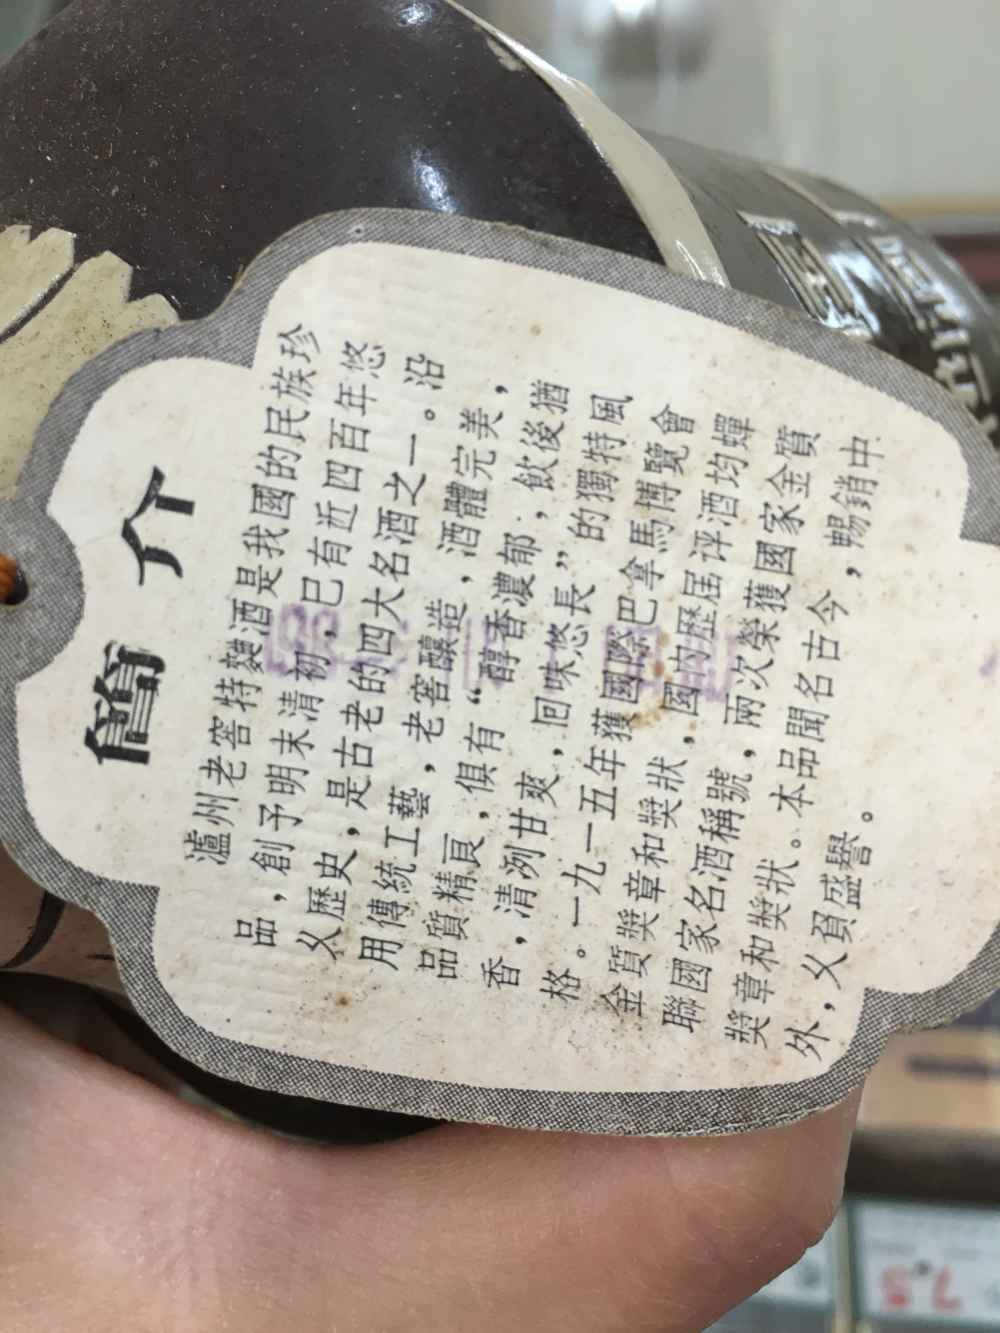 簡介
瀘州老窖特麯酒是我國的民族珍
品，創予明末清初，已有近四百年悠
乆歷史，是古老的四大名酒之一。沿
用傳統工藝，老窖釀造，酒體完美，
品質精良，俱有“醇香濃郁，飲後猶
香，清洌甘爽，回味悠長”的獨特風
格。一九一五年獲國際巴拿馬博覽會
金質獎章和獎狀，國内歷届评酒均蟬
聯國家名酒稱號，兩次榮獲國家金質
獎章和獎狀。本品聞名古今，暢銷中
外，乆負盛譽。